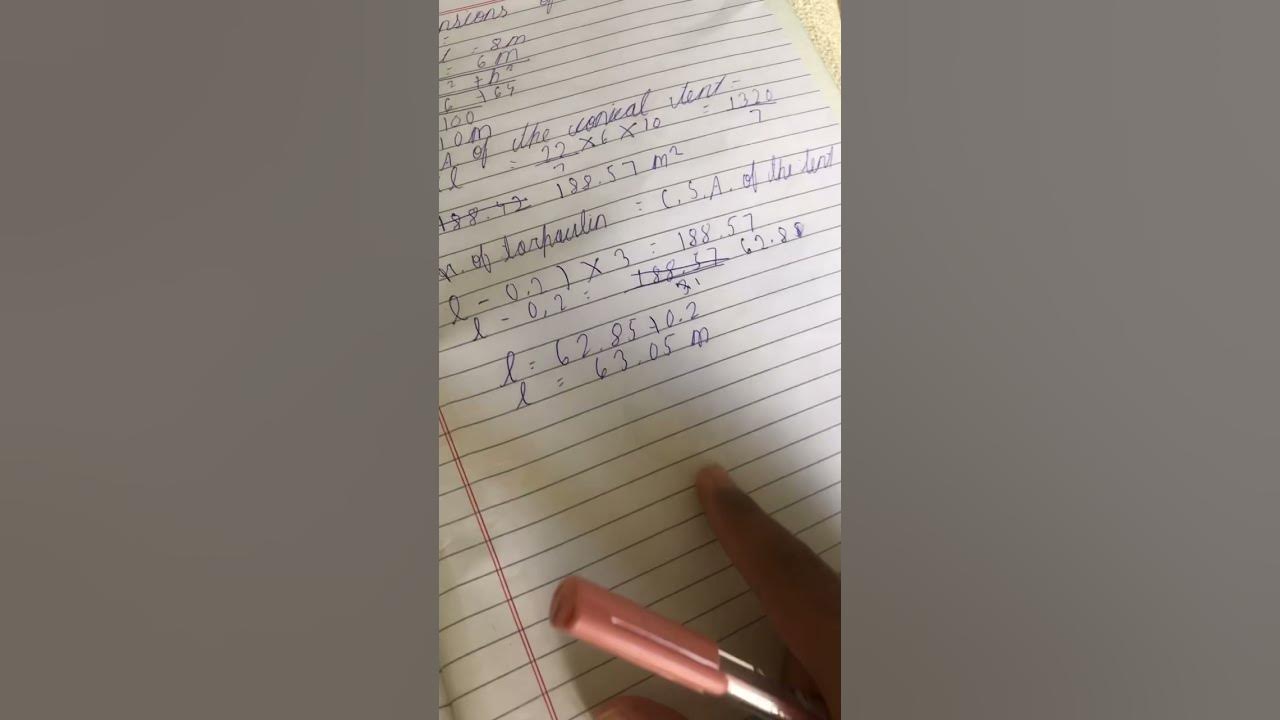 nsions of
l = 8m
= 6m
2 + h²
6 + 64
100
10m
A of the conical tent =
l = 22/7 × 6 × 10 = 1320/7
188.42 188.57 m²
n. of tarpaulin = C.S.A. of the tent
l - 0.2) × 3 = 188.57
l - 0.2 = 188.57/3 62.85
l = 62.85 + 0.2
l = 63.05 m